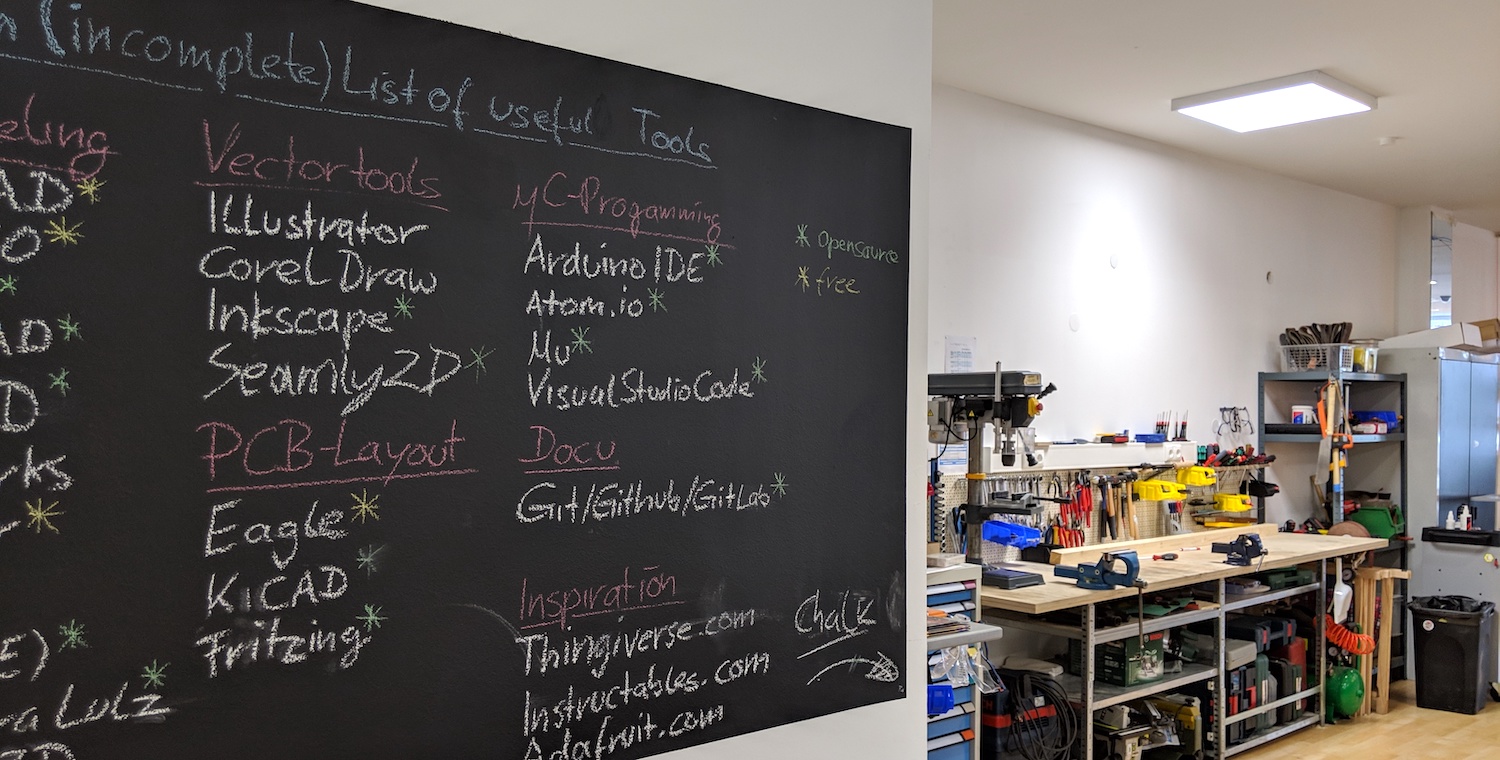 (incomplete) List of useful Tools
eling
AD*
O*
*
AD*
D*
rks
r*
E)*
ra Lulz*
Vectortools
Illustrator
Corel Draw
Inkscape*
Seamly2D*
PCB-Layout
Eagle*
KiCAD*
Fritzing*
µC-Progamming
Arduino IDE*
Atom.io*
Mu*
Visual Studio Code*
Docu
Git/Github/GitLab*
Inspiration
Thingiverse.com
Instructables.com
Adafruit.com
* opensource
* free
Chalk